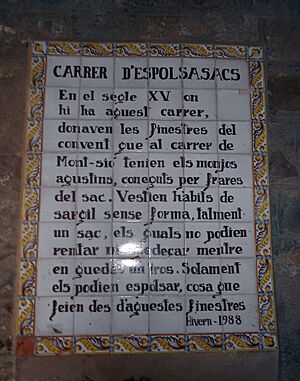 CARRER D'ESPOLSASACS
En el segle XV on
hi ha aquest carrer,
donaven les finestres del
convent que al carrer de
Mont-sió tenien els monjos
agustins, coneguts per frares
del sac. Vestien hàbits de
sargil sense forma, talment
un sac, els quals no podien
rentar ni adedeçar mentre
en quedés un tros. Solament
els podien espolsar, cosa que
feien des d'aquestes finestres
Hivern-1988